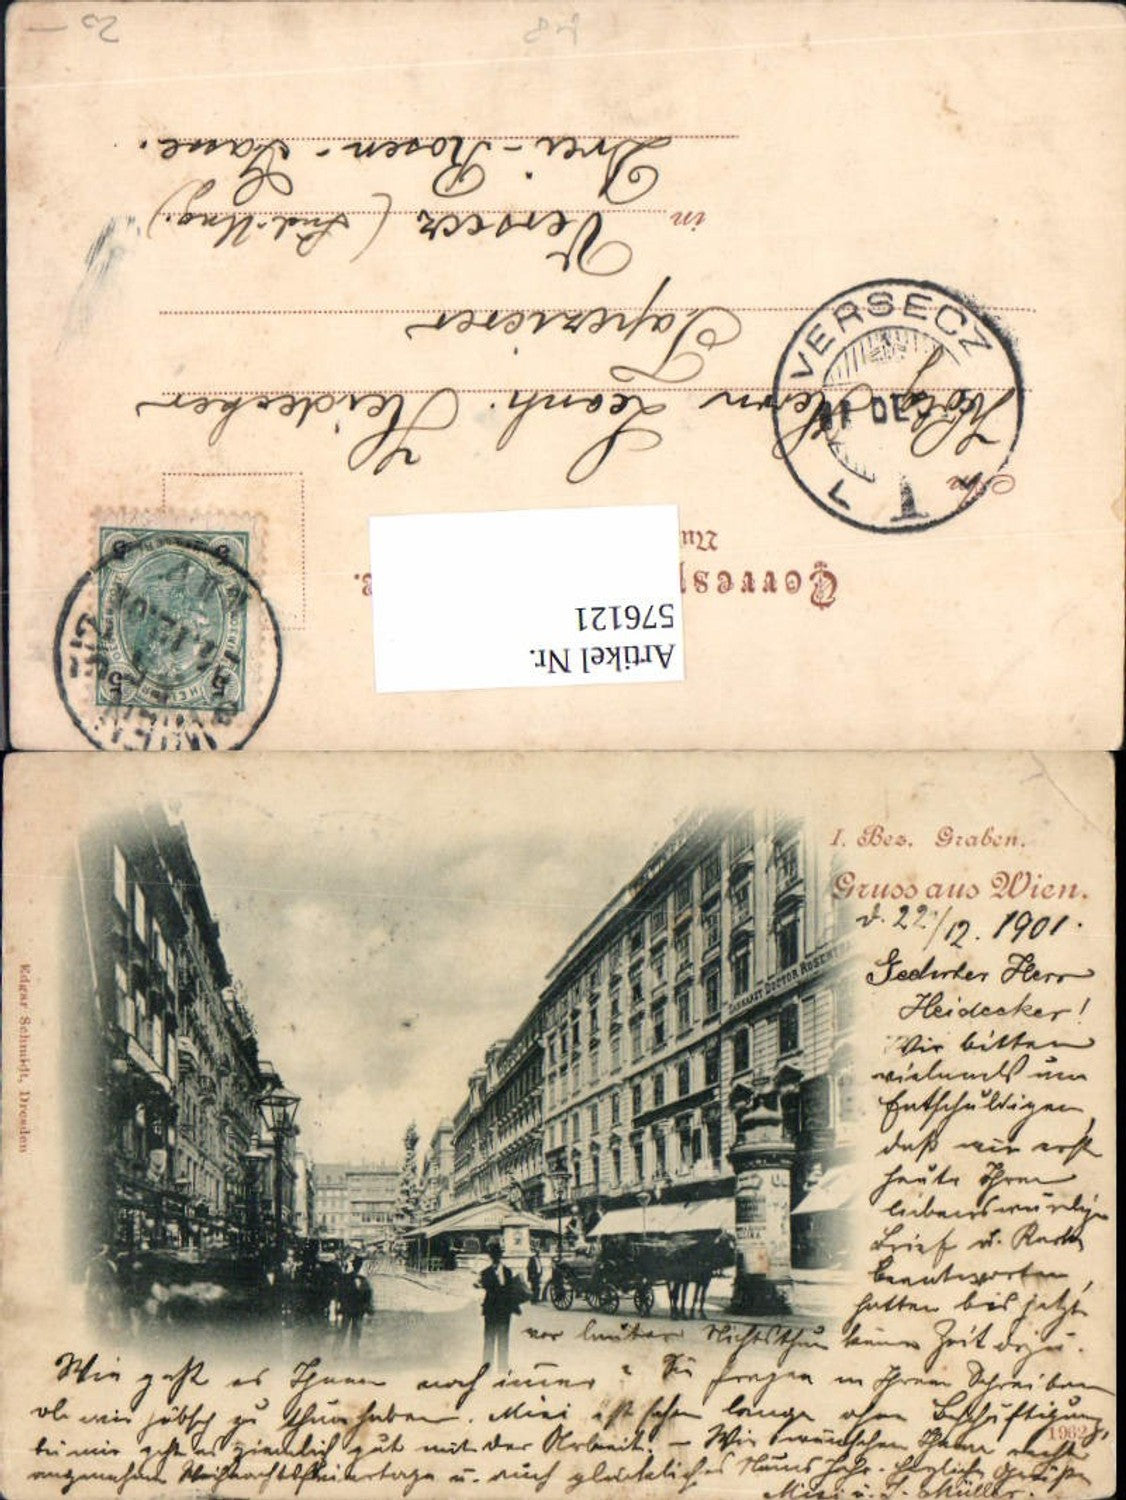 Artikel Nr.
576121
in
An
Wolg Herrn Leonh. Heidecker
Tapezierer
Versecz (Süd-Ung.)
Drei-Rosen-Gasse.
VERSECZ
WIEN
5 5
I. Bez. Graben.
Gruss aus Wien.
d. 22/12. 1901.
Geehrter Herr
Heidecker!
Wir bitten
vielmals um
Entschuldigen,
daß wir erst
heute Ihren
liebenswürdigen
Brief u. Karte
beantworten,
hatten bis jetzt
vor lauter Nichtsthun keine Zeit dazu.
Wie geht es Ihnen noch immer? Sie fragen in Ihrem Schreiben
ob wir hübsch zu thun haben. Mizi ist schon lange ohne Beschäftigung,
bei mir geht es ziemlich gut mit der Arbeit. – Wir wünschen Ihnen recht
angenehme Weihnachtsfeiertage u. auch glückliches Neues Jahr. Herzliche Grüße
Mizi u. J. Müller.
Edgar Schmidt, Dresden